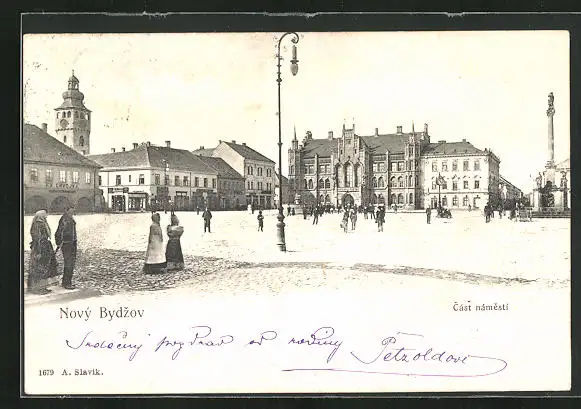 Nový Bydžov
Část náměstí
Srdečný pozdrav od rodiny Petzoldovi
1679 A. Slavík.